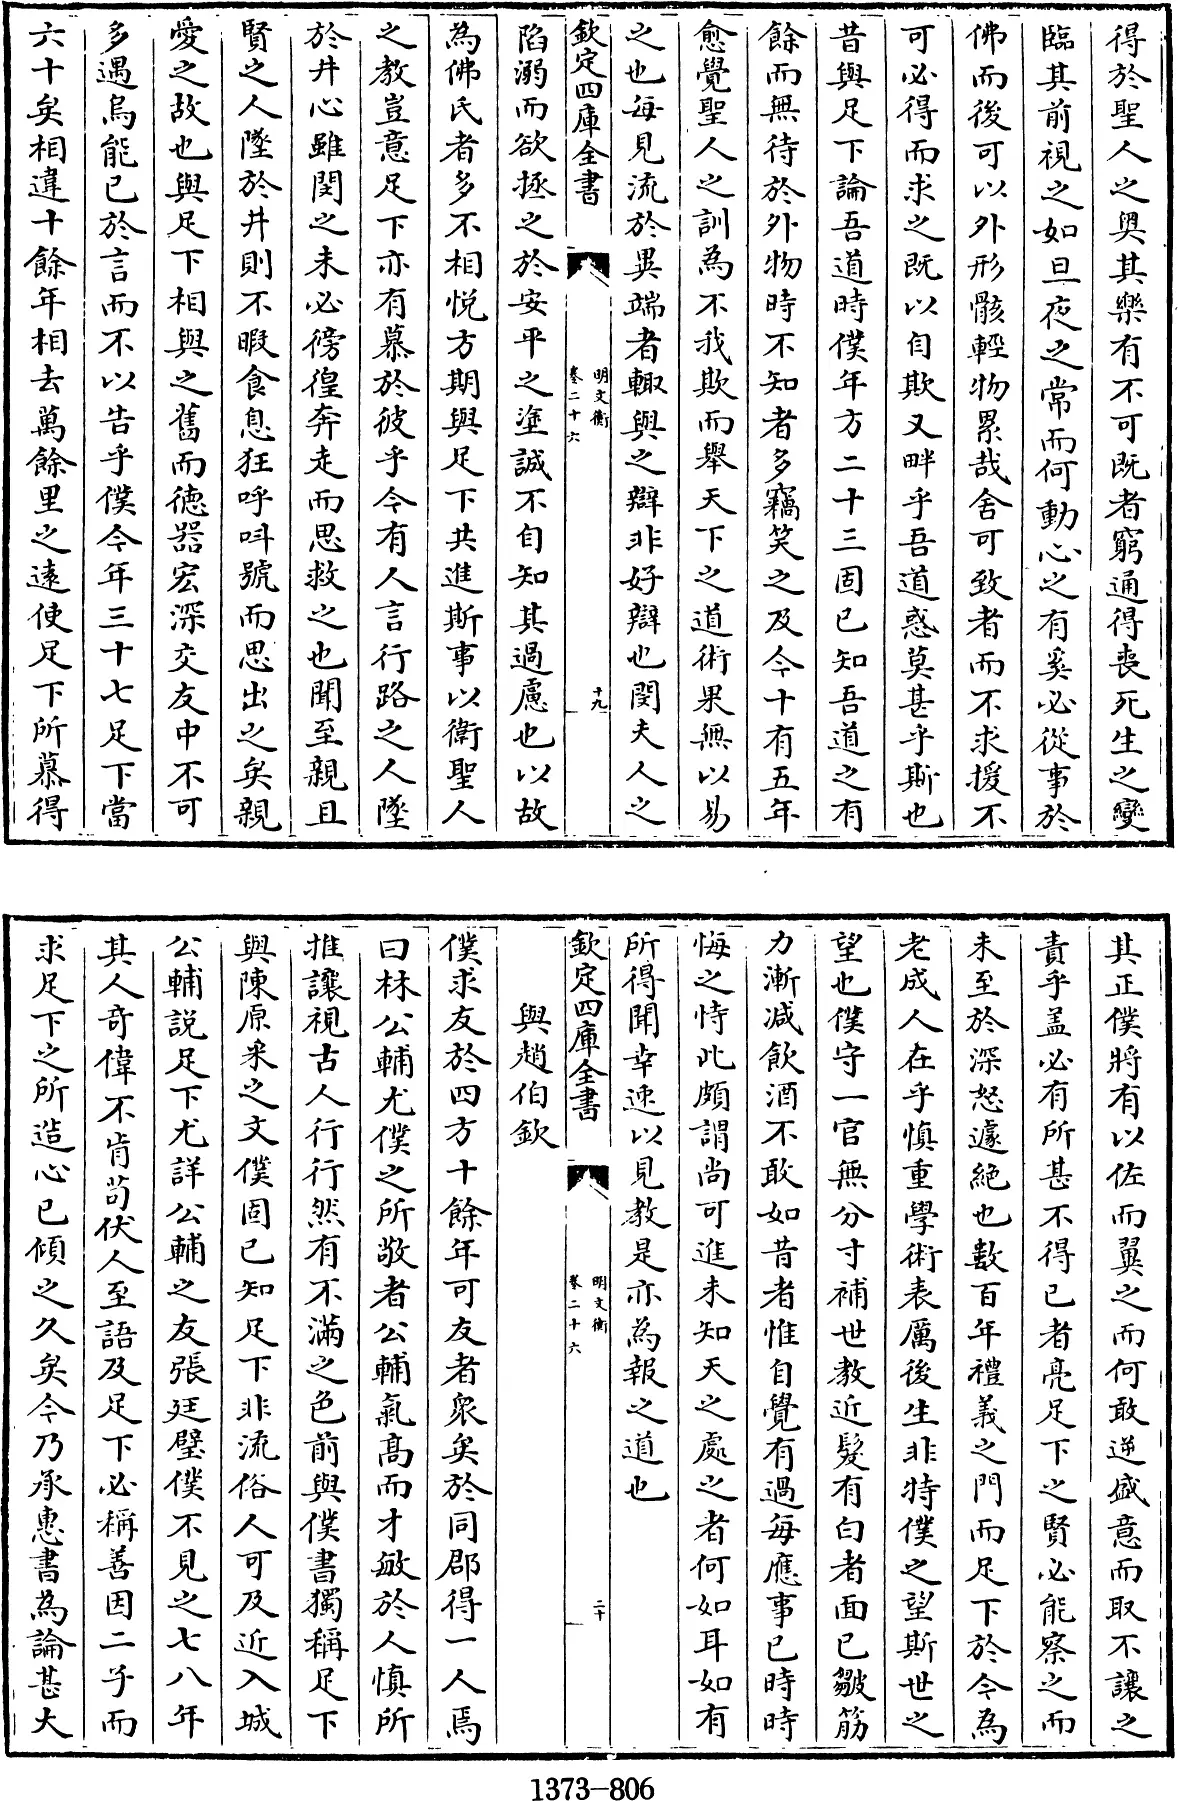 得於聖人之奧其樂有不可既者窮通得喪死生之變
臨其前視之如旦夜之常而何動心之有奚必從事於
佛而後可以外形骸輕物累哉舍可致者而不求援不
可必得而求之既以自欺又畔乎吾道惑莫甚乎斯也
昔與足下論吾道時僕年方二十三固已知吾道之有
餘而無待於外物時不知者多竊笑之及今十有五年
愈覺聖人之訓為不我欺而舉天下之道術果無以易
之也每見流於異端者輙與之辯非好辯也閔夫人之
欽定四庫全書
明文衡
卷二十六
十九
陷溺而欲拯之於安平之塗誠不自知其過慮也以故
為佛氏者多不相悅方期與足下共進斯事以衛聖人
之教豈意足下亦有慕於彼乎今有人言行路之人墜
於井心雖閔之未必徬徨奔走而思救之也聞至親且
賢之人墜於井則不暇食息狂呼呌號而思出之矣親
愛之故也與足下相與之舊而德器宏深交友中不可
多遇烏能已於言而不以告乎僕今年三十七足下當
六十矣相違十餘年相去萬餘里之遠使足下所慕得
其正僕將有以佐而翼之而何敢逆盛意而取不讓之
責乎盖必有所甚不得已者亮足下之賢必能察之而
未至於深怒遽絶也數百年禮義之門而足下於今為
老成人在乎慎重學術表厲後生非特僕之望斯世之
望也僕守一官無分寸補世教近髮有白者面已皺筋
力漸減飲酒不敢如昔者惟自覺有過每應事已時時
悔之恃此頗謂尚可進未知天之處之者何如耳如有
所得聞幸速以見教是亦為報之道也
欽定四庫全書
明文衡
卷二十六
二十
與趙伯欽
僕求友於四方十餘年可友者衆矣於同郡得一人焉
曰林公輔尤僕之所敬者公輔氣高而才敏於人慎所
推讓視古人行行然有不滿之色前與僕書獨稱足下
與陳原采之文僕固已知足下非流俗人可及近入城
公輔説足下尤詳公輔之友張廷璧僕不見之七八年
其人奇偉不肯茍伏人至語及足下必稱善因二子而
求足下之所造心已傾之久矣今乃承惠書為論甚大
1373-806